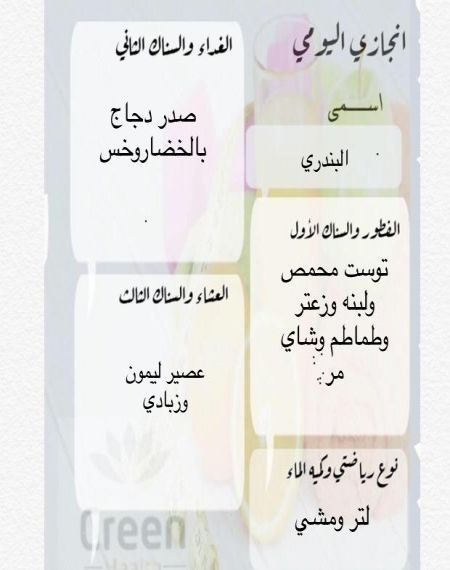 انجازي اليومي
اسمى
البندري
الفطور والسناك الأول
توست محمص
ولبنه وزعتر
وطماطم وشاي
مر
نوع رياضتي وكميه الماء
لتر ومشي
الغداء والسناك الثاني
صدر دجاج
بالخضاروخس
العشاء والسناك الثالث
عصير ليمون
وزبادي
Green